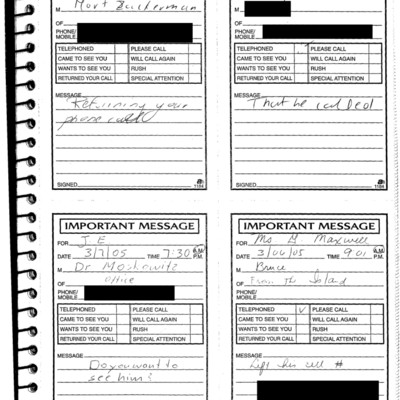 M Mort Zuckerman
OF
PHONE/
MOBILE
TELEPHONED PLEASE CALL
CAME TO SEE YOU WILL CALL AGAIN
WANTS TO SEE YOU RUSH
RETURNED YOUR CALL SPECIAL ATTENTION
MESSAGE Returning your
phone call
SIGNED 1184
M
OF
PHONE/
MOBILE
TELEPHONED PLEASE CALL
CAME TO SEE YOU WILL CALL AGAIN
WANTS TO SEE YOU RUSH
RETURNED YOUR CALL SPECIAL ATTENTION
MESSAGE
That he called
SIGNED 1184
IMPORTANT MESSAGE
FOR J E
DATE 3/7/05 TIME 7:30 A.M. P.M.
M Dr Moskowitz
OF office
PHONE/
MOBILE
TELEPHONED PLEASE CALL
CAME TO SEE YOU WILL CALL AGAIN
WANTS TO SEE YOU RUSH
RETURNED YOUR CALL SPECIAL ATTENTION
MESSAGE
Do you want to
see him?
IMPORTANT MESSAGE
FOR Ms G Maxwell
DATE 3/06/05 TIME 9:01 A.M. P.M.
M Bruce
OF From the Island
PHONE/
MOBILE
TELEPHONED ✓ PLEASE CALL
CAME TO SEE YOU WILL CALL AGAIN
WANTS TO SEE YOU RUSH
RETURNED YOUR CALL SPECIAL ATTENTION
MESSAGE
Left his cell #